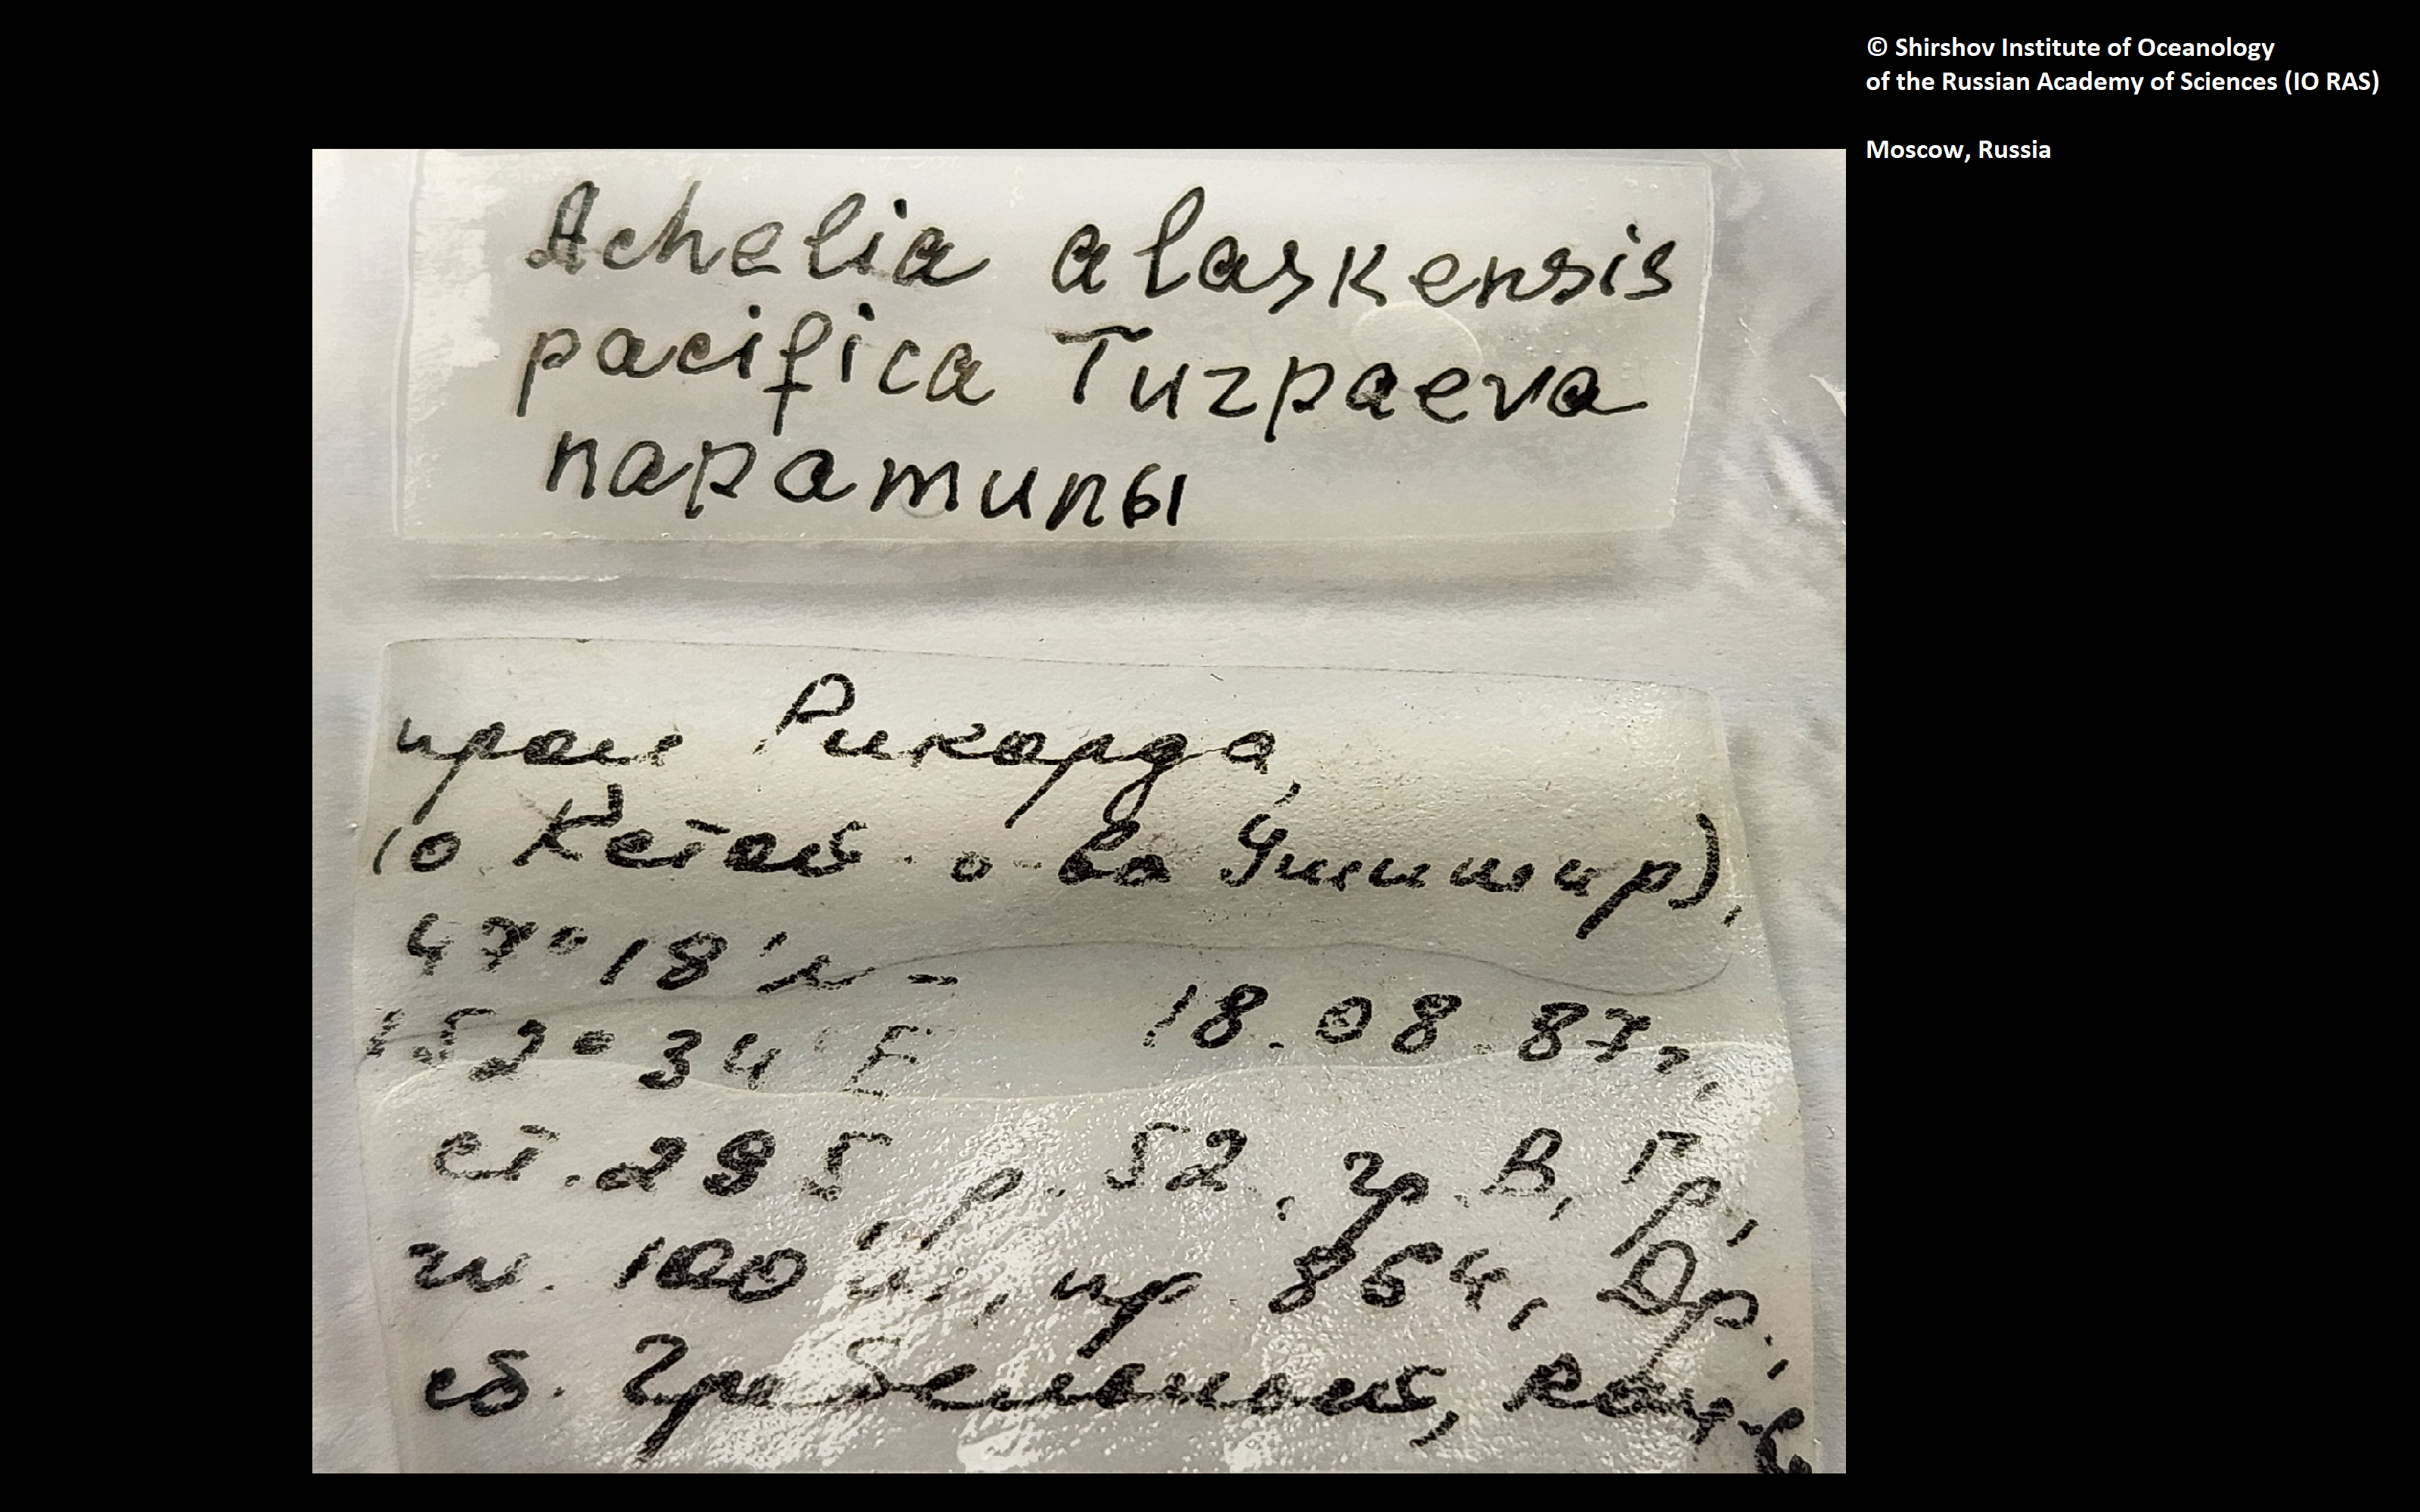 © Shirshov Institute of Oceanology
of the Russian Academy of Sciences (IO RAS)
Moscow, Russia
Achelia alaskensis
pacifica Turpaeva
паратипы
прол Рикорда,
(о Кетой - о-ва Ушишир),
47°18'N -
152°34'E 18.08.87г,
ст. 295, р. 52, гр. В, Гр,
гл. 100 м, пр 854, Др.
сб. Гребельный,